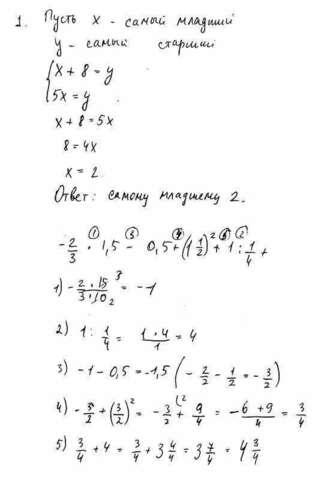 1. Пусть x - самый младший
y - самый старший
{x + 8 = y
5x = y
x + 8 = 5x
8 = 4x
x = 2
Ответ: самому младшему 2.
① ③ ④ ⑤ ②
-2/3 · 1,5 - 0,5 + (1 1/2)² + 1 : 1/4 +
1) -2·15/3·10 3 2 = -1
2) 1 : 1/4 = 1·4/1 = 4
3) -1 - 0,5 = -1,5 (-2/2 - 1/2 = -3/2)
4) -3/2 + (3/2)² = -3/2 (2 + 9/4 = -6+9/4 = 3/4
5) 3/4 + 4 = 3/4 + 3 4/4 = 3 7/4 = 4 3/4